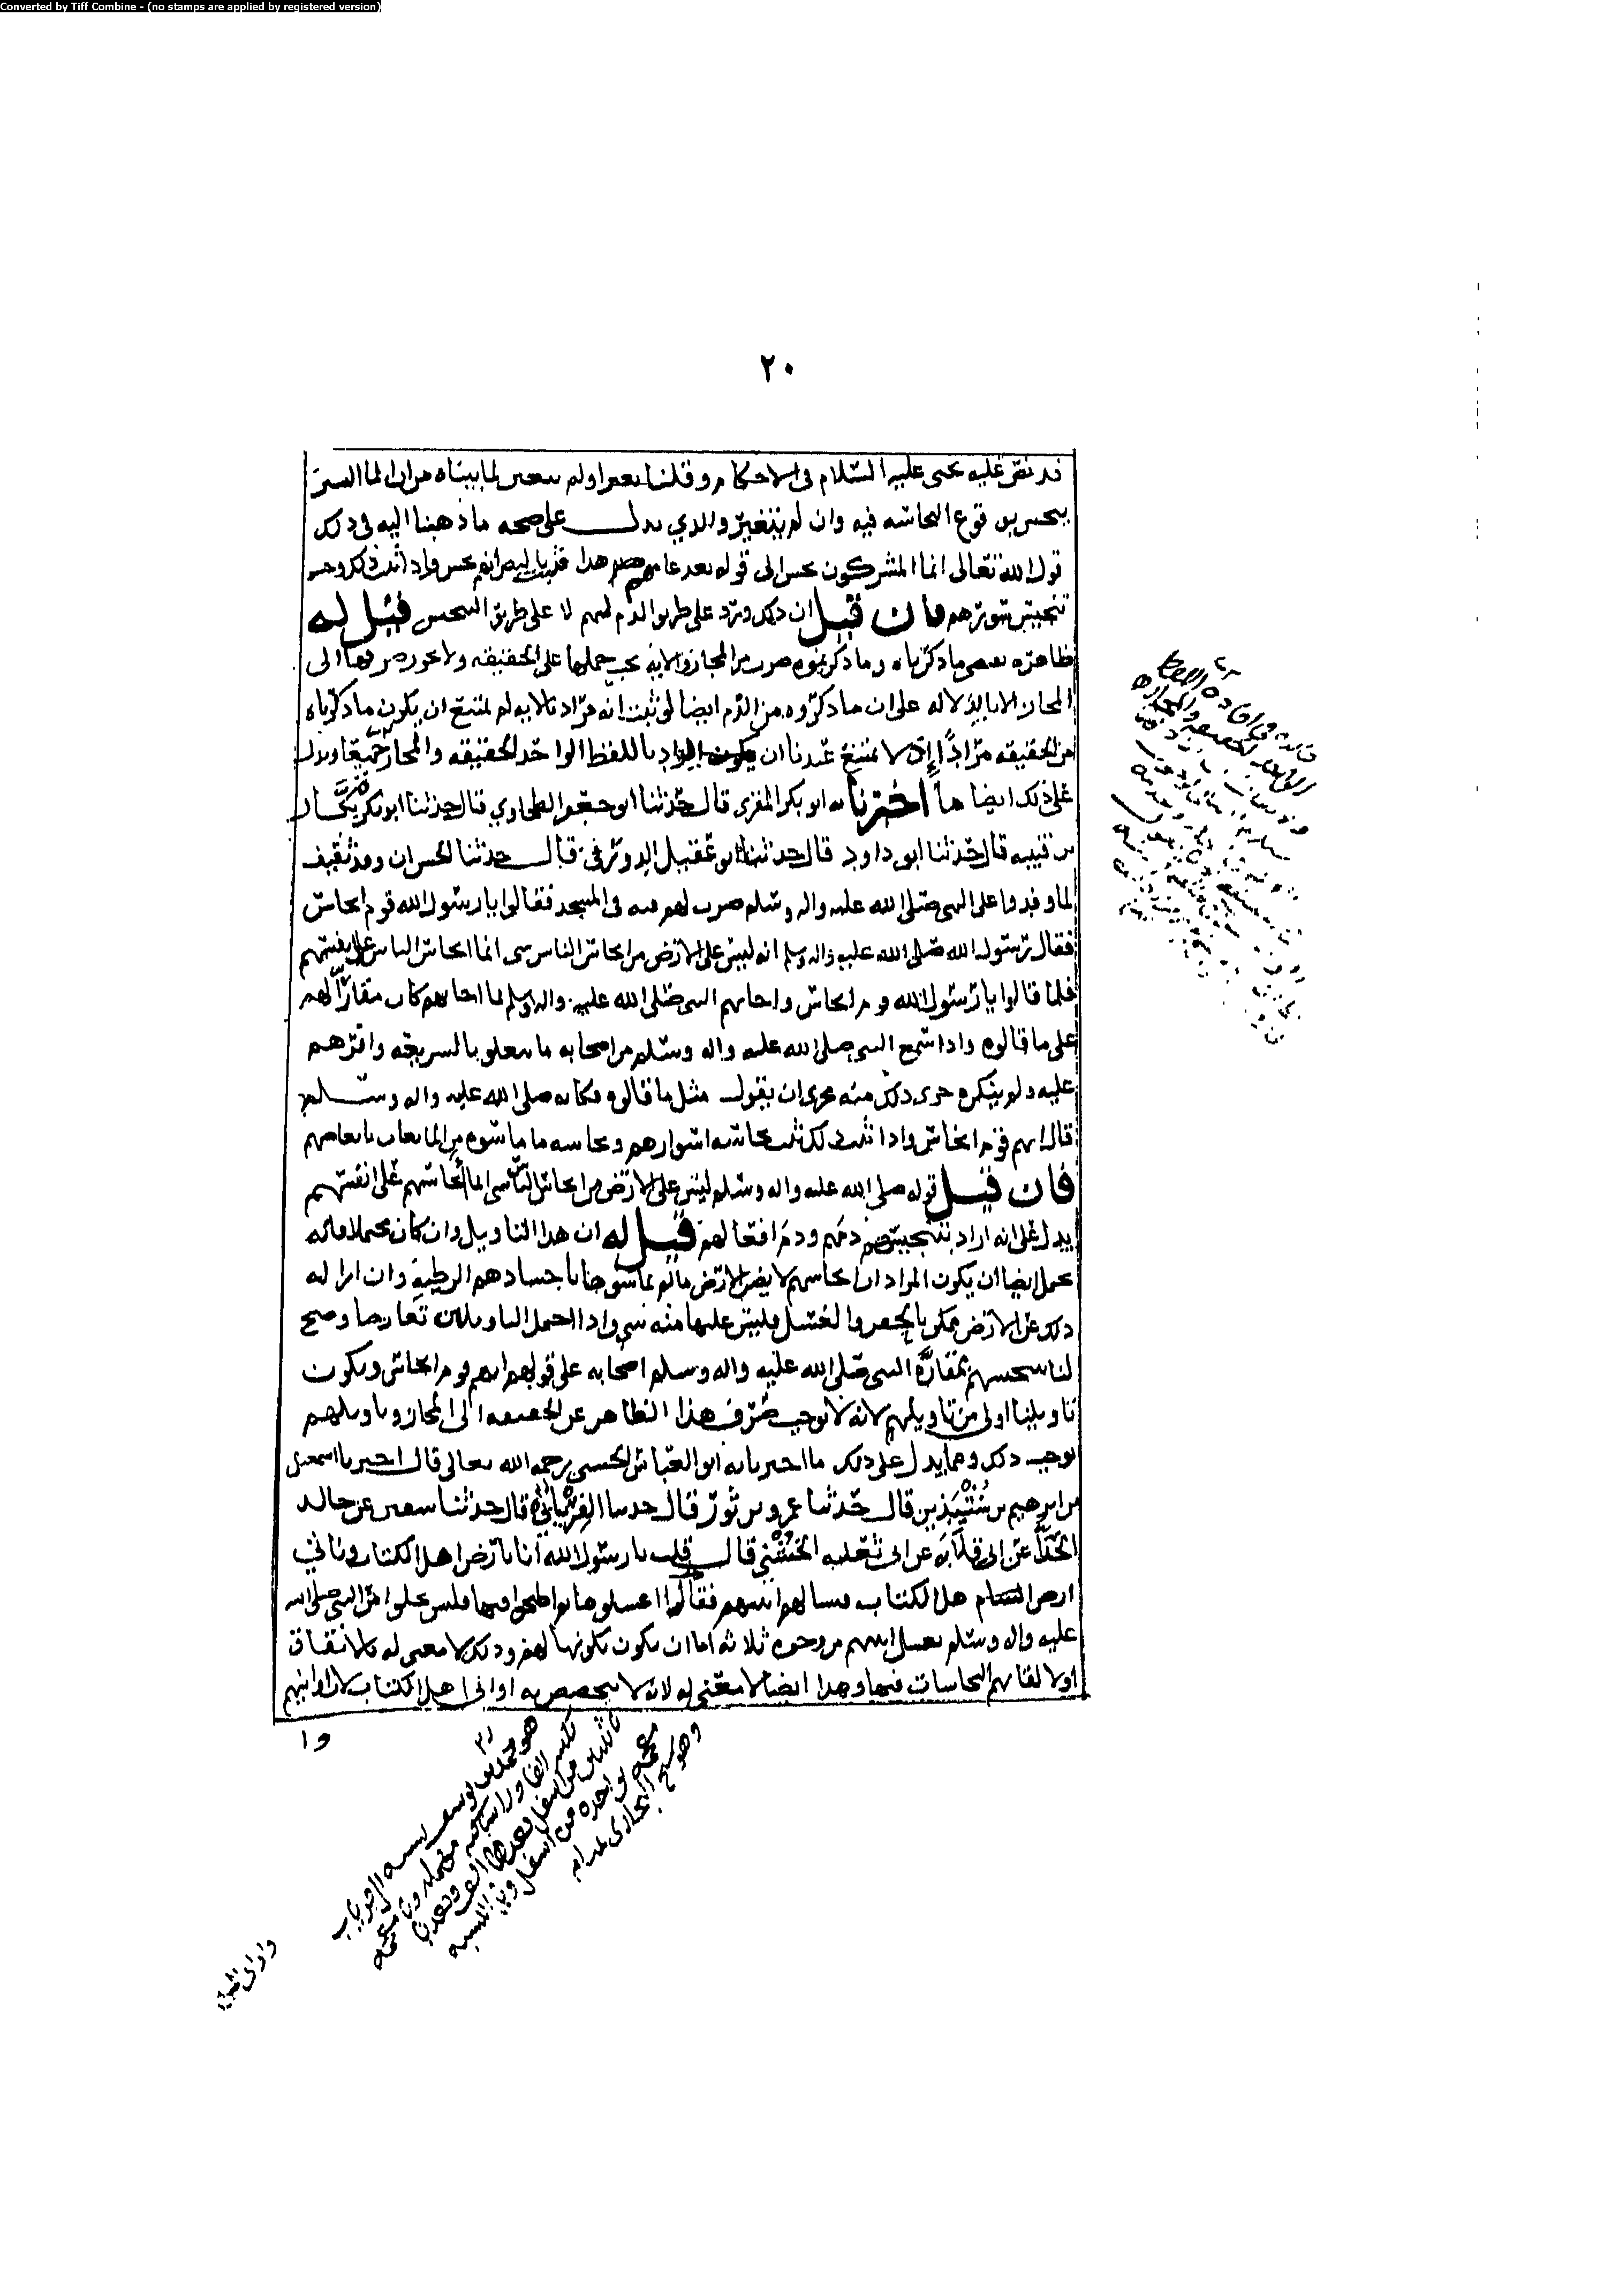 Converted by Tiff Combine - (no stamps are applied by registered version)
٢٠
قد نص عليه يحيى عليه السلام في الاحكام وقلنا تغير او لم يتغير لما بيناه من ان الماء اليسير
ينجس بوقوع النجاسه فيه وان لم يتغير والذي يدل على صحه ما ذهبنا اليه في ذلك
قول الله تعالى انما المشركون نجس الى قوله بعد عامهم هذا انهم نجس واذا ثبت ذلك وجب
تنجيس سؤرهم فان قيل ان ذلك ورد على طريق الذم لهم لا على طريق التنجيس قيل له
ظاهره يقتضي ما ذكرناه وما ذكرتموه ضرب من المجاز والايه يجب حملها على الحقيقه ولا يجوز صرفها الى
المجاز الا بالدلاله على ان ما ذكروه من الذم ايضا لو ثبت انه مراد بالايه لم يمتنع ان يكون ما ذكرناه
من الحقيقه مرادا اذ لا يمتنع عندنا ان يراد باللفظ الواحد الحقيقه والمجاز جميعا ويدل
على ذلك ايضا ما اخبرنا به ابو بكر المقري قال حدثنا ابو جعفر الطحاوي قال حدثنا ابو بكره بكار
بن قتيبه قال حدثنا ابو داود قال حدثنا ابو عقيل الدورقي قال حدثنا الحسن ان وفد ثقيف
لما وفدوا على النبي صلى الله عليه واله وسلم ضرب لهم قبه في المسجد فقالوا يا رسول الله قوم انجاس
فقال رسول الله صلى الله عليه واله وسلم انه ليس على الارض من انجاس الناس شي انما انجاس الناس على انفسهم
فلما قالوا يا رسول الله قوم انجاس واجابهم النبي صلى الله عليه واله وسلم بما اجابهم كان مقارا لهم
على ما قالوه واذا سمع النبي صلى الله عليه واله وسلم من اصحابه ما يتعلق بالشريعه واقرهم
عليه ولم ينكره جرى ذلك منه مجرى ان يقول مثل ما قالوه فكانه صلى الله عليه واله وسلم
قال انهم قوم انجاس واذا ثبت ذلك ثبت نجاسه اسوارهم ونجاسه ما ماسوه من المايعات بابعاضهم
فان قيل قوله صلى الله عليه واله وسلم ليس على الارض من انجاس الناس شي انما انجاسهم على انفسهم
يدل على انه اراد بتنجيسهم ذمهم وذم افعالهم قيل له ان هذا التاويل وان كان محتملا فانه
يحتمل ايضا ان يكون المراد ان انجاسهم لا يضر الارض ما لم يماسوها باجسادهم الرطبه وان ازاله
ذلك عن الارض ممكن بالحفر والغسل فليس عليها منه شي واذا احتمل التاويلان تعارضا وصح
لنا تنجيسهم بمقاره النبي صلى الله عليه واله وسلم اصحابه على قولهم انهم قوم انجاس ويكون
تاويلنا اولى من تاويلهم لانه لا يوجب صرف هذا الظاهر عن الحقيقه الى المجاز وتاويلهم
يوجب ذلك ومما يدل على ذلك ما اخبرنا به ابو العباس الحسني رحمه الله تعالى قال اخبرنا اسمعيل
بن ابرهيم بن شنبذين قال حدثنا عمرو بن ثور قال حدثنا الفريابي قال حدثنا سفين عن خالد
الحذا عن ابي قلابه عن ابي ثعلبه الخشني قال قلت يا رسول الله انا بارض اهل الكتاب وناتي
ارض اهل الكتاب فنسالهم انيتهم فقال اغسلوها ثم اطبخوا فيها فليس يخلوا امر النبي صلى الله
عليه واله وسلم بغسل انيتهم من وجوه ثلاثه اما ان يكون لكونها لهم وذلك لا معنى له بالاتفاق
او لالقائهم النجاسات فيها وهذا ايضا لا معنى له لانه لا يختص به اواني اهل الكتاب لان اوانيهم
وا
هو محمد بن يوسف
وهو شيخ البخاري